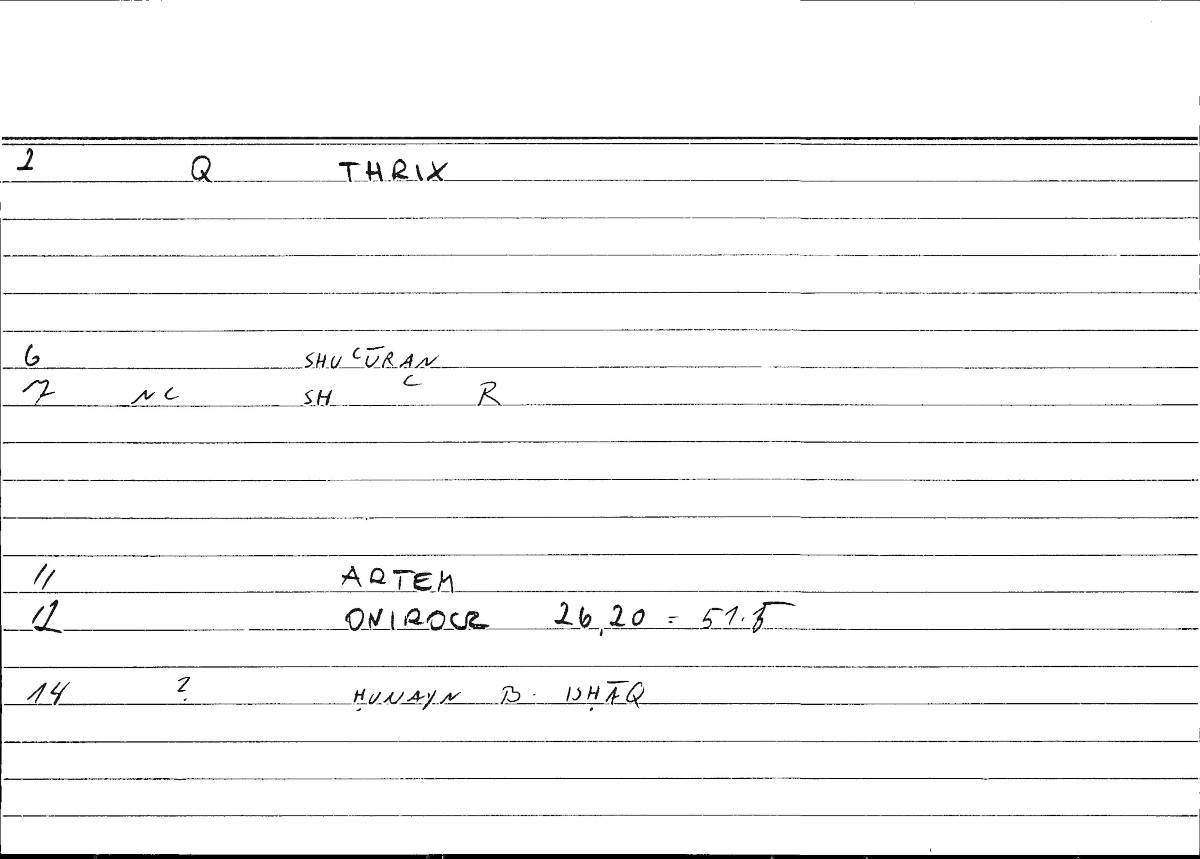 2 Q THRIX
6 SHUʿŪRAN
7 NC SH ʿ R
11 ARTEM
12 ONIROCR 26,20 = 51.5
14 ? ḤUNAYN B. ISḤĀQ